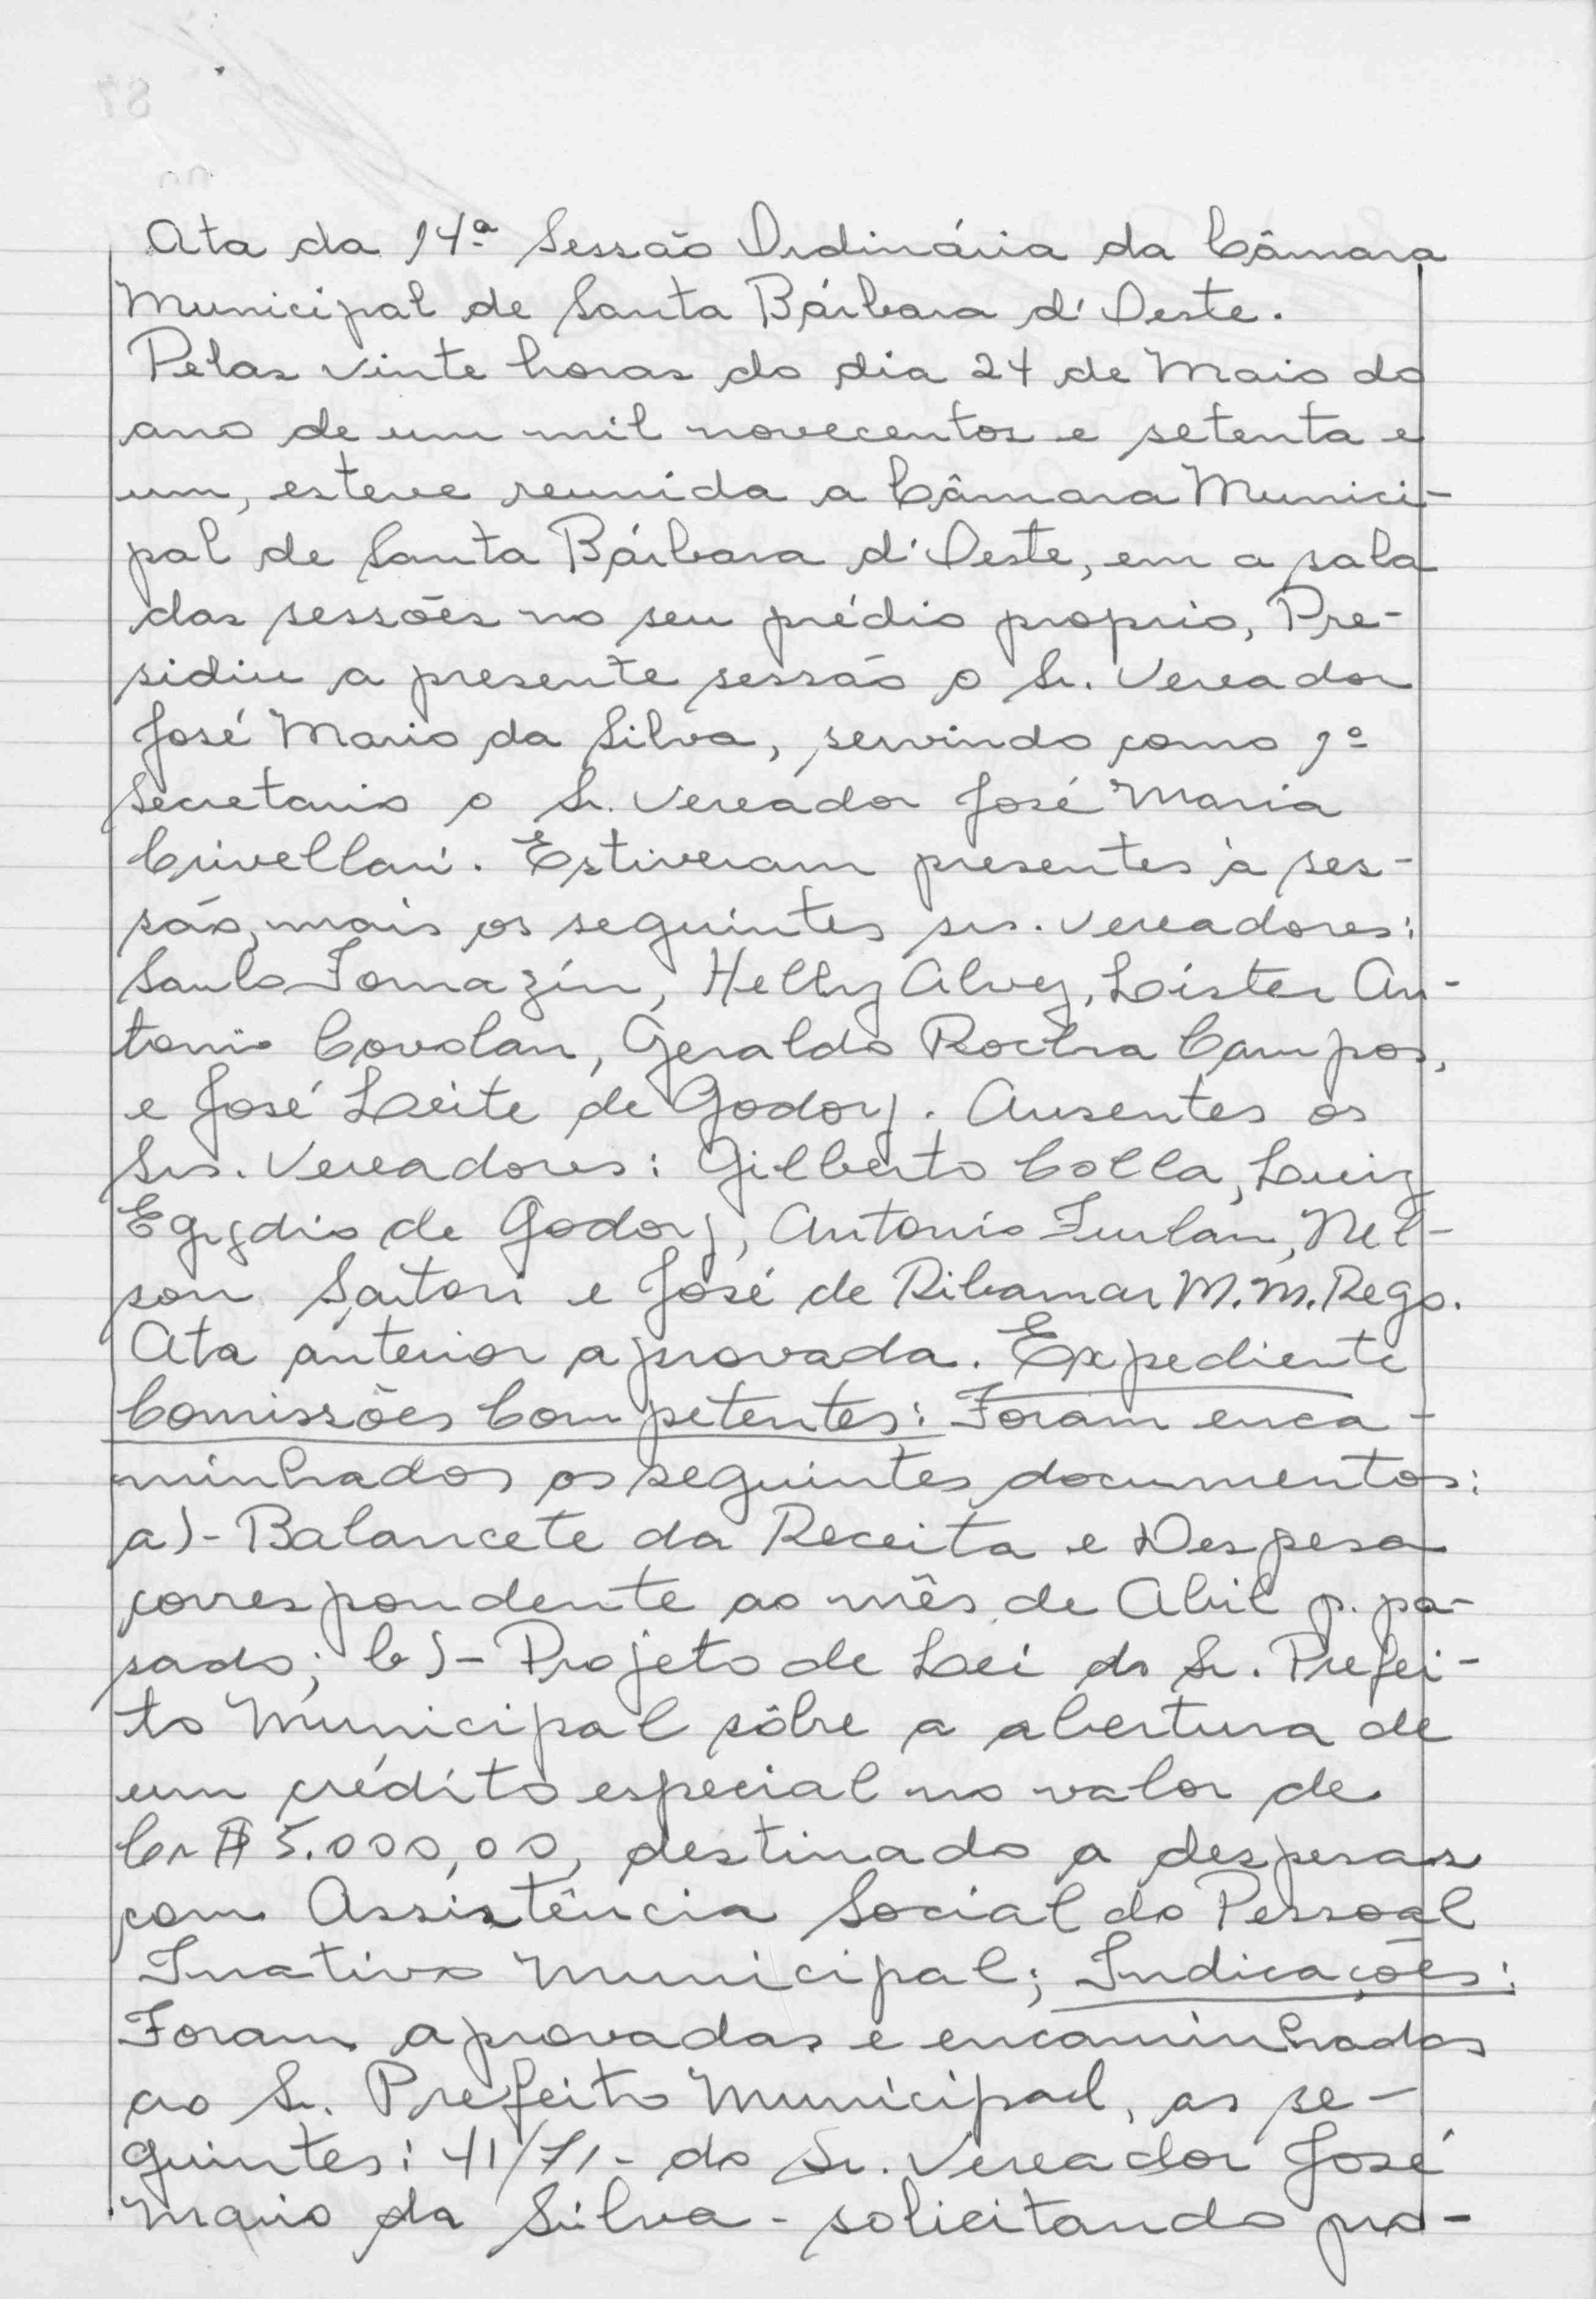 Ata da 14ª Sessão Ordinária da Câmara
Municipal de Santa Bárbara d'Oeste.
Pelas vinte horas do dia 24 de Maio do
ano de um mil novecentos e setenta e
um, esteve reunida a Câmara Munici-
pal de Santa Bárbara d'Oeste, em a sala
das sessões no seu prédio proprio, Pre-
sidiu a presente sessão o Sr. Vereador
José Mario da Silva, servindo como 1º
Secretario o Sr. Vereador José Maria
Crivellari. Estiveram presentes à ses-
são, mais os seguintes srs. vereadores:
Saulo Fomazin, Helly Alvez, Lister An-
tonio Covolan, Geraldo Rocha Campos,
e José Leite de Godoy. Ausentes os
Srs. Vereadores: Gilberto Colla, Luiz
Egydio de Godoy, Antonio Furlan, Nel-
son Sartori e José de Ribamar M.M. Rego.
Ata anterior aprovada. Expediente
Comissões Competentes: Foram enca-
minhados os seguintes documentos:
a)- Balancete da Receita e Despesa
correspondente ao mês de Abril p. pa-
sado; b)- Projeto de Lei do Sr. Prefei-
to Municipal sôbre a abertura de
um crédito especial no valor de
Cr$ 5.000,00, destinado a despesas
com Assistência Social do Pessoal
Inativo Municipal; Indicações:
Foram aprovadas e encaminhadas
ao Sr. Prefeito Municipal, as se-
guintes: 41/71- do Sr. Vereador José
Mario da Silva - solicitando pro-